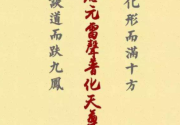 化形而滿十方
元雷聲普化天尊
談道而趺九鳳